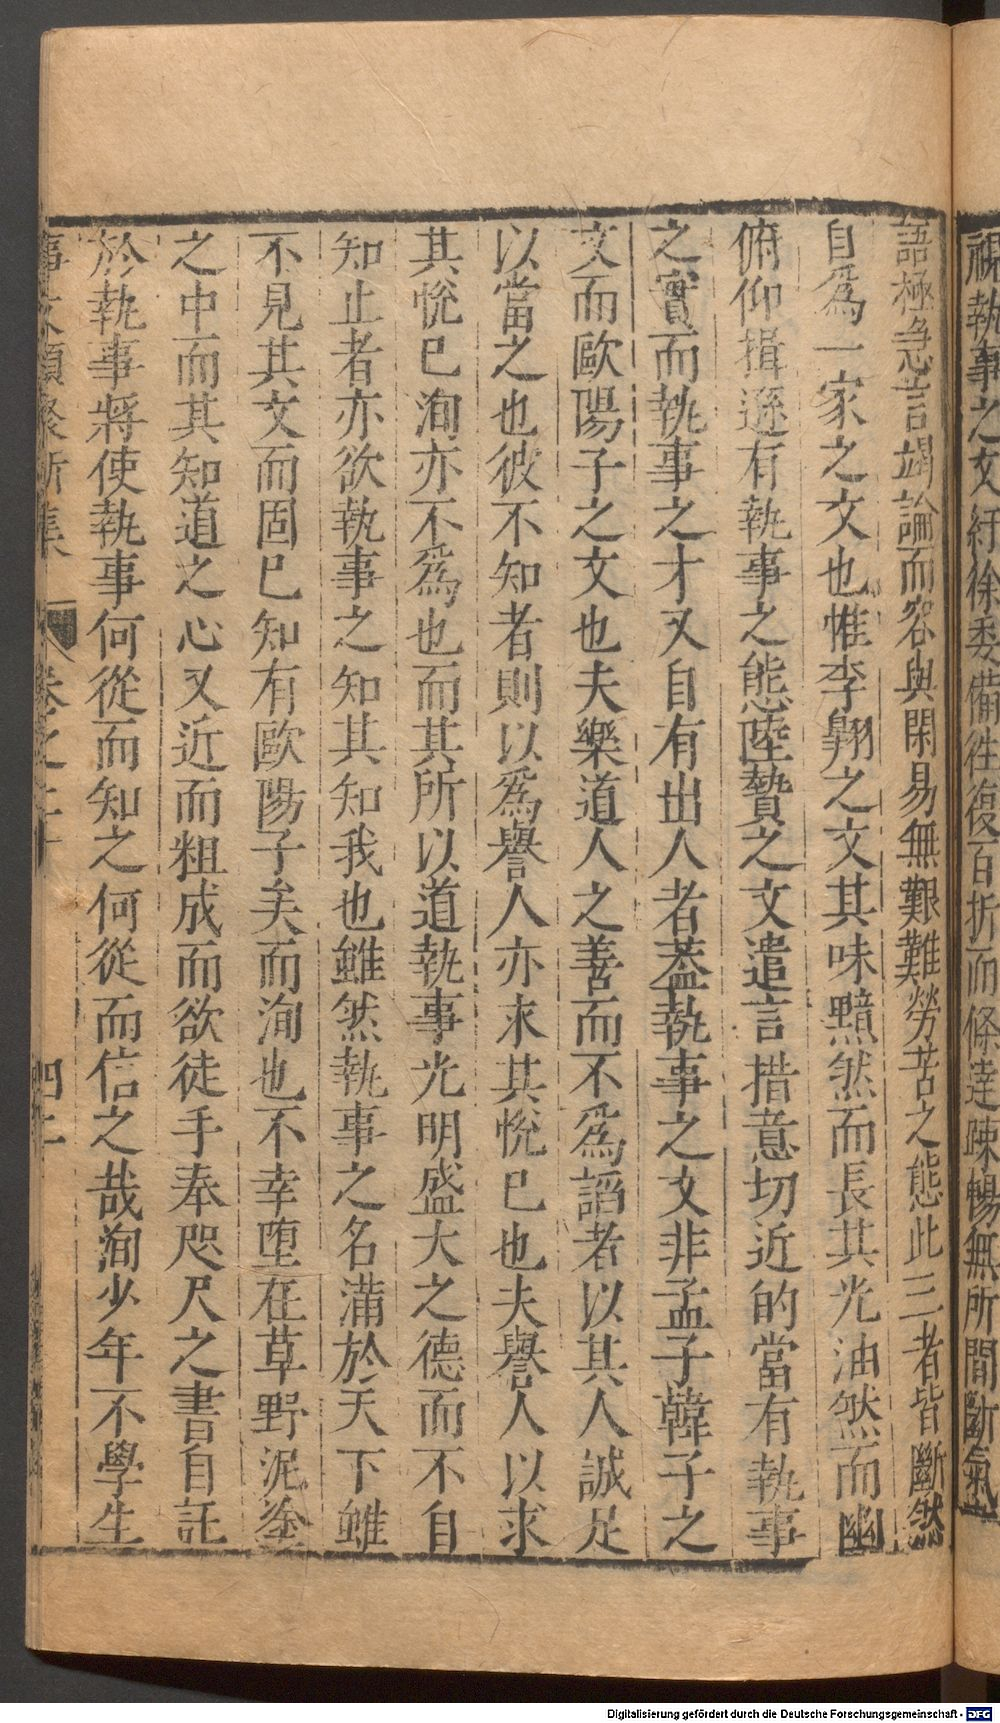 視執事之文紆徐委備往復百折而條達疎暢無所間斷氣
語極急言竭論而容與閑易無艱難勞苦之態此三者皆斷然
自爲一家之文也惟李翱之文其味黯然而長其光油然而幽
俯仰揖遜有執事之態陸贄之文遣言措意切近的當有執事
之實而執事之才又自有出人者葢執事之文非孟子韓子之
文而歐陽子之文也夫樂道人之善而不爲謟者以其人誠足
以當之也彼不知者則以爲譽人亦求其悅已也夫譽人以求
其悅已洵亦不爲也而其所以道執事光明盛大之德而不自
知止者亦欲執事之知其知我也雖然執事之名滿於天下雖
不見其文而固已知有歐陽子矣而洵也不幸堕在草野泥塗
之中而其知道之心又近而粗成而欲徒手奉咫尺之書自託
於執事將使執事何從而知之何從而信之哉洵少年不學生
事文類聚新集 卷之二十 四二
Digitalisierung gefördert durch die Deutsche Forschungsgemeinschaft - DFG